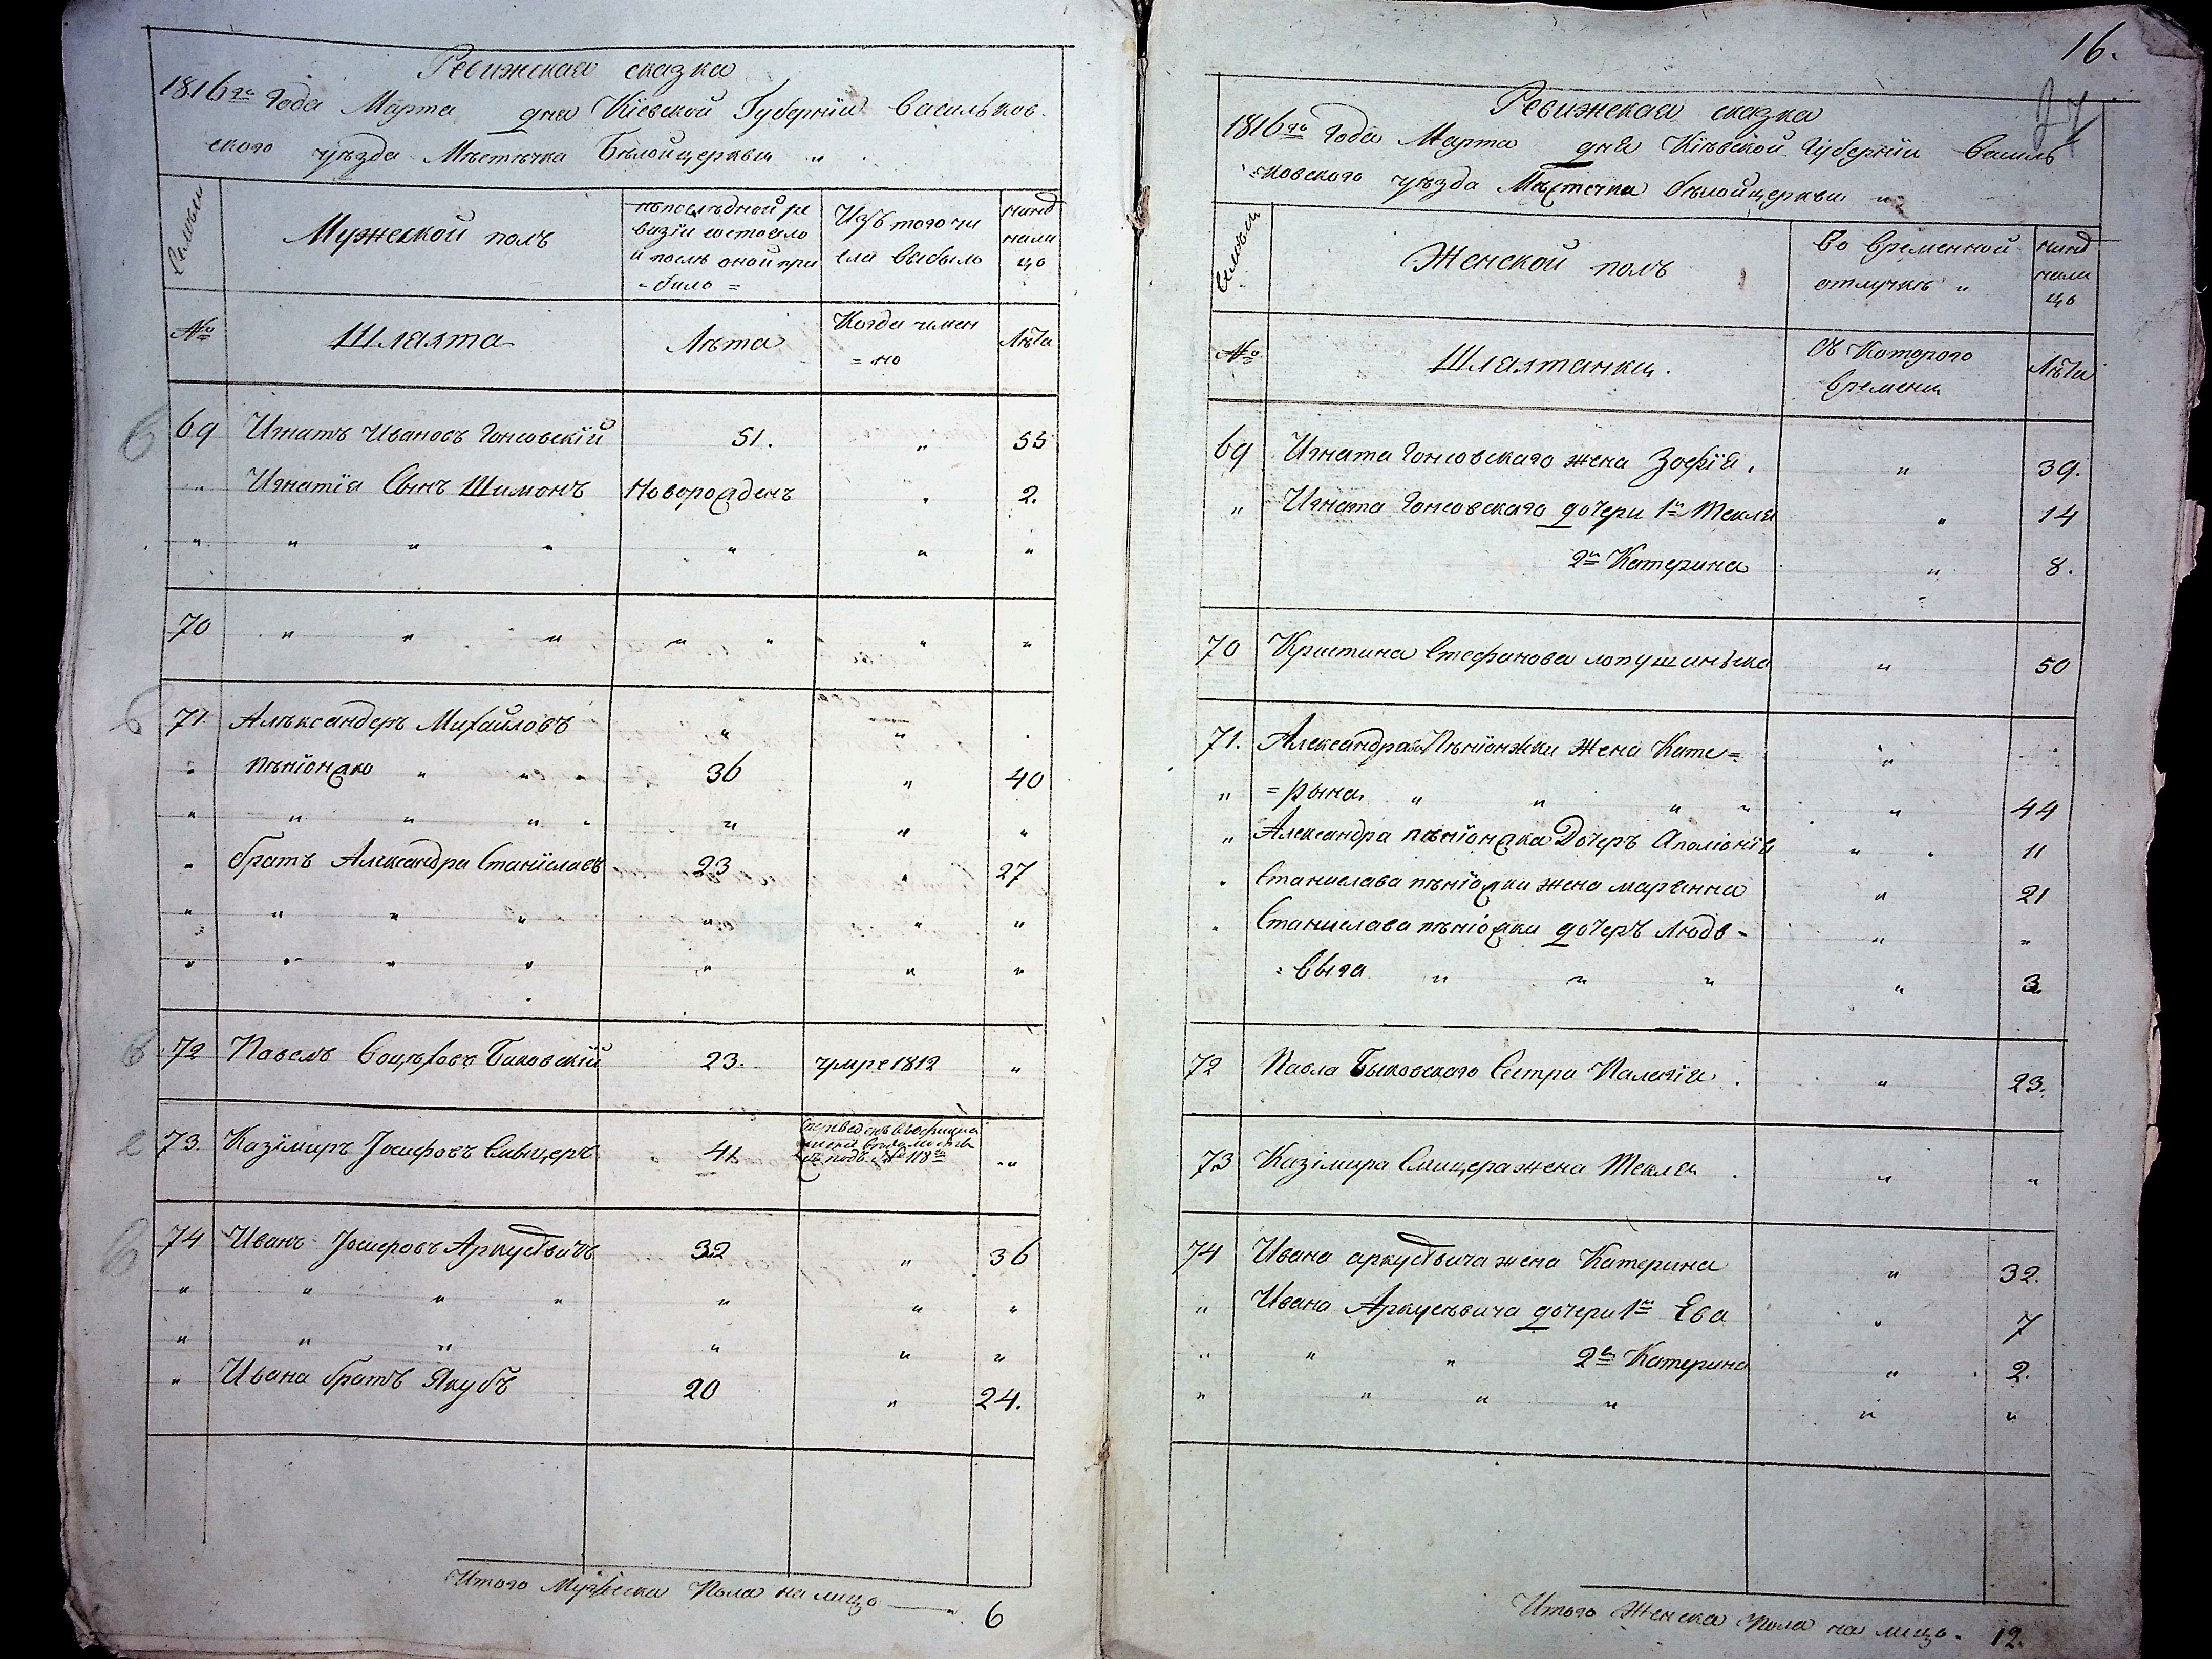 Ревижская сказка
1816го Года Марта дня Кіевской Губерніи Васильков
ского уѣзда Мѣстечка Бѣлойцеркви "
Семьи
Мужеской полъ
попослѣдной ре
визіи состояло
и послѣ оной при
было =
Изъ того чи
сла выбыло
нынѣ
нали
цо
№
Шляхта
Лѣта
Когда имен
= но
Лѣта
69 Игнатъ Ивановъ Гонсовскій 51. " 55
" Игнатія Сынъ Шимонъ Новорожденъ " 2.
70 " " " " " " "
71 Алѣксандеръ Михайловъ
Пѣніонжко " " " 36 " 40
" братъ Александра Станіславъ 23 " 27
72 Павелъ Биковскій 23. умре 1812 "
73. Казіміръ Іосифовъ Смыцеръ 41
подъ № 118м
74 Иванъ Іосифовъ Аркусевичъ 32 " 36
" Ивана братъ Якубъ 20 " 24.
Итого Мужеска Пола на лицо — 6
16.
Ревижская сказка
1816го Года Марта дня Кіѣвской Губерніи Василь
=ковского уѣзда Мѣстечка бѣлойцеркви "
Семьи
Женской полъ
Во временной
отлучкѣ "
нынѣ
нали
цо
№
Шляхтанки.
Съ Которого
Времени
Лѣта
69 Игната Гонсовскаго жена Зофія. " 39.
" Игната Гонсовскаго дочери 1я Текля " 14
2я Катерина " 8.
70 Кристина Стефанова лопушанѣска " 50
71. Александра Пѣніонжки жена Кате=
" =рына. " " " " " 44
" Александра пѣніонжка Дочеръ Аполіонія " 11
" Станислава пѣніожки жена марьянна " 21
" Станислава пѣніожки дочеръ людв-
=выга " " " " 3
72 Павла Быковскаго Сестра Палагія. " 23.
73 Казіміра Смицера жена Текля " "
74 Ивана аркусевича жена Катерина " 32.
" Ивана Аркусевича дочери 1я Ева " 7
" " " 2я Катерина " 2.
Итого Женска Пола на лицо. 12.